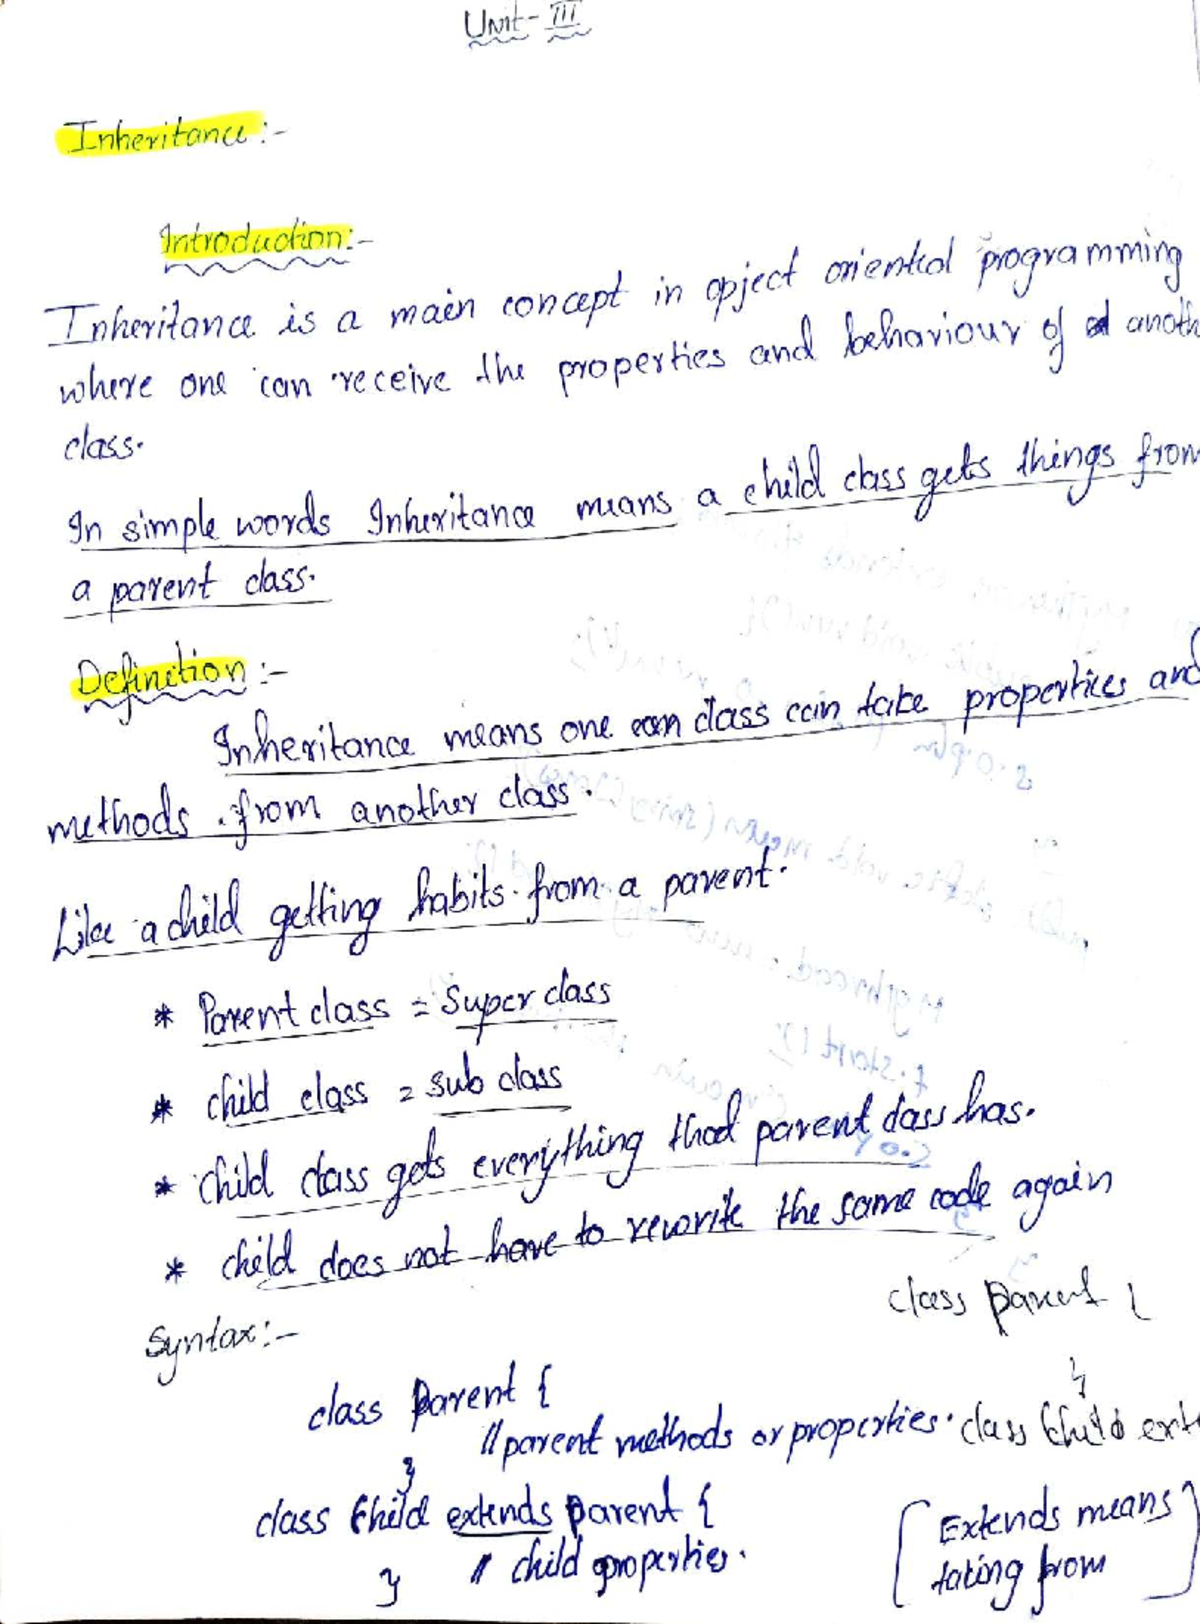 Unit-III
Inheritance:-
Introduction:-
Inheritance is a main concept in opject oriented programming
where one can receive the properties and behaviour of anoth
class.
In simple words Inheritance means a child class gets things from
a parent class.
Definition:-
Inheritance means one can class can take properties and
methods from another class.
Like a child getting habits from a parent.
* Parent class = Super class
* child class = sub class
* child class gets everything that parent class has.
* child does not have to rewrite the same code again
class parent {
Syntax:-
}
class Parent {
//parent methods or properties. class Child exte
}
class Child extends parent {
// child properties.
}
[Extends means
taking from]